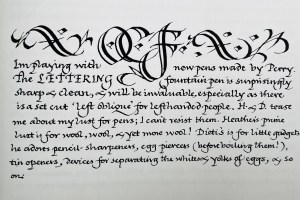 Im playing with new pens made by Perry.
The LETTERING fountain pen is surprisingly
sharp & clean, & will be invaluable, especially as there
is a set cut 'left oblique' for lefthanded people. H. & D. tease
me about my lust for pens; I can't resist them. Heather is prime
lust is for wool, wool, & yet more wool! Dioti's is for little gadgets
he adores pencil-sharpeners, egg piercers (before boiling them!),
tin openers, devices for separating the whites & yolks of eggs, & so
on: